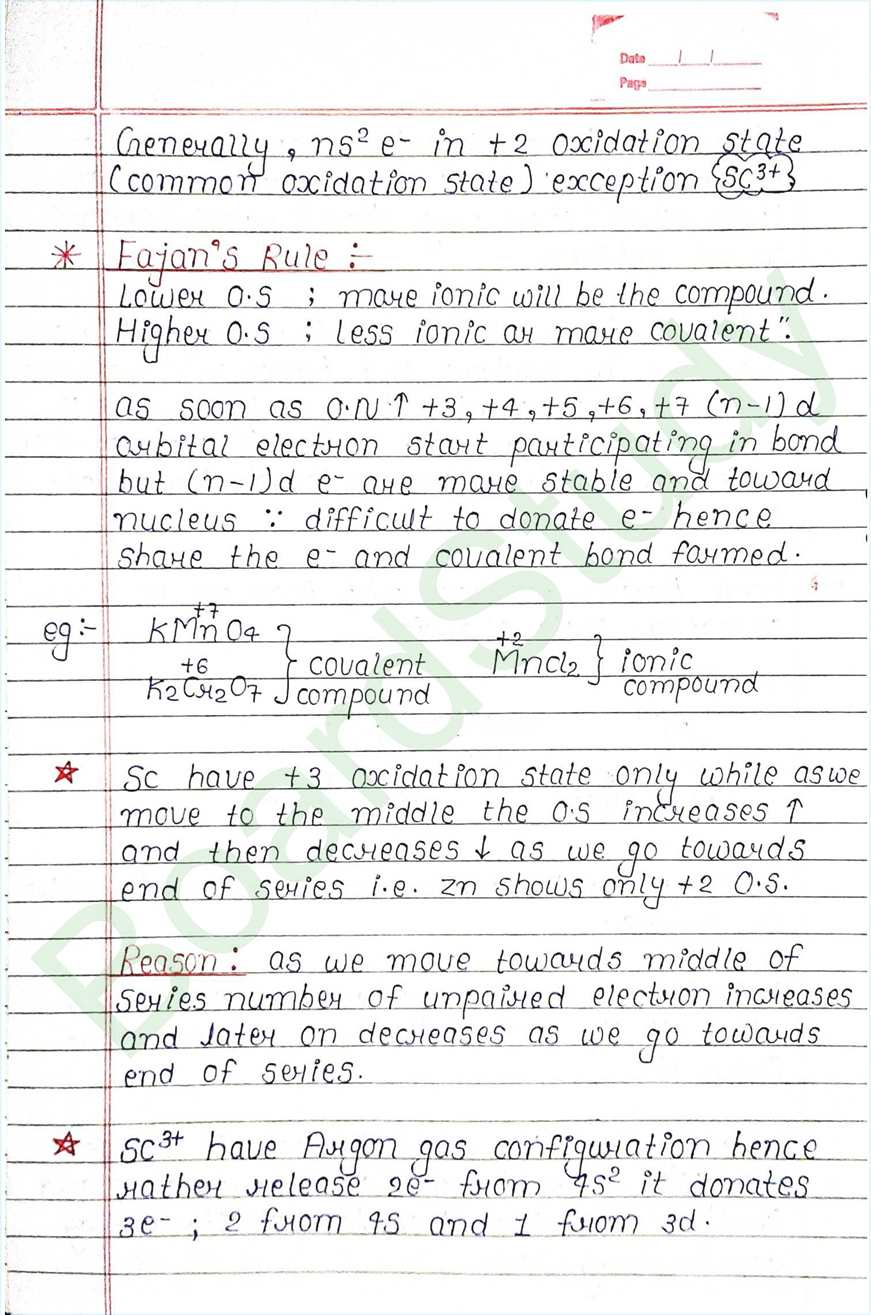 Date / /
Page
Generally, ns² e⁻ in +2 oxidation state
(common oxidation state) exception {Sc³⁺}
* Fajan's Rule :-
Lower O.S ; more ionic will be the compound.
Higher O.S ; less ionic or more covalent".
as soon as O.N ↑ +3, +4, +5, +6, +7 (n-1) d
orbital electron start participating in bond
but (n-1)d e⁻ are more stable and toward
nucleus ∵ difficult to donate e⁻ hence
share the e⁻ and covalent bond formed.
+7 +2
eg:- KMnO4 } covalent MnCl2 } ionic
+6
K2Cr2O7 compound compound
☆ Sc have +3 oxidation state only while as we
move to the middle the O.S increases ↑
and then decreases ↓ as we go towards
end of series i.e. Zn shows only +2 O.S.
Reason : as we move towards middle of
series number of unpaired electron increases
and later on decreases as we go towards
end of series.
☆ Sc³⁺ have Argon gas configuration hence
rather release 2e⁻ from 4s² it donates
3e⁻ ; 2 from 4s and 1 from 3d.
BoardStudy